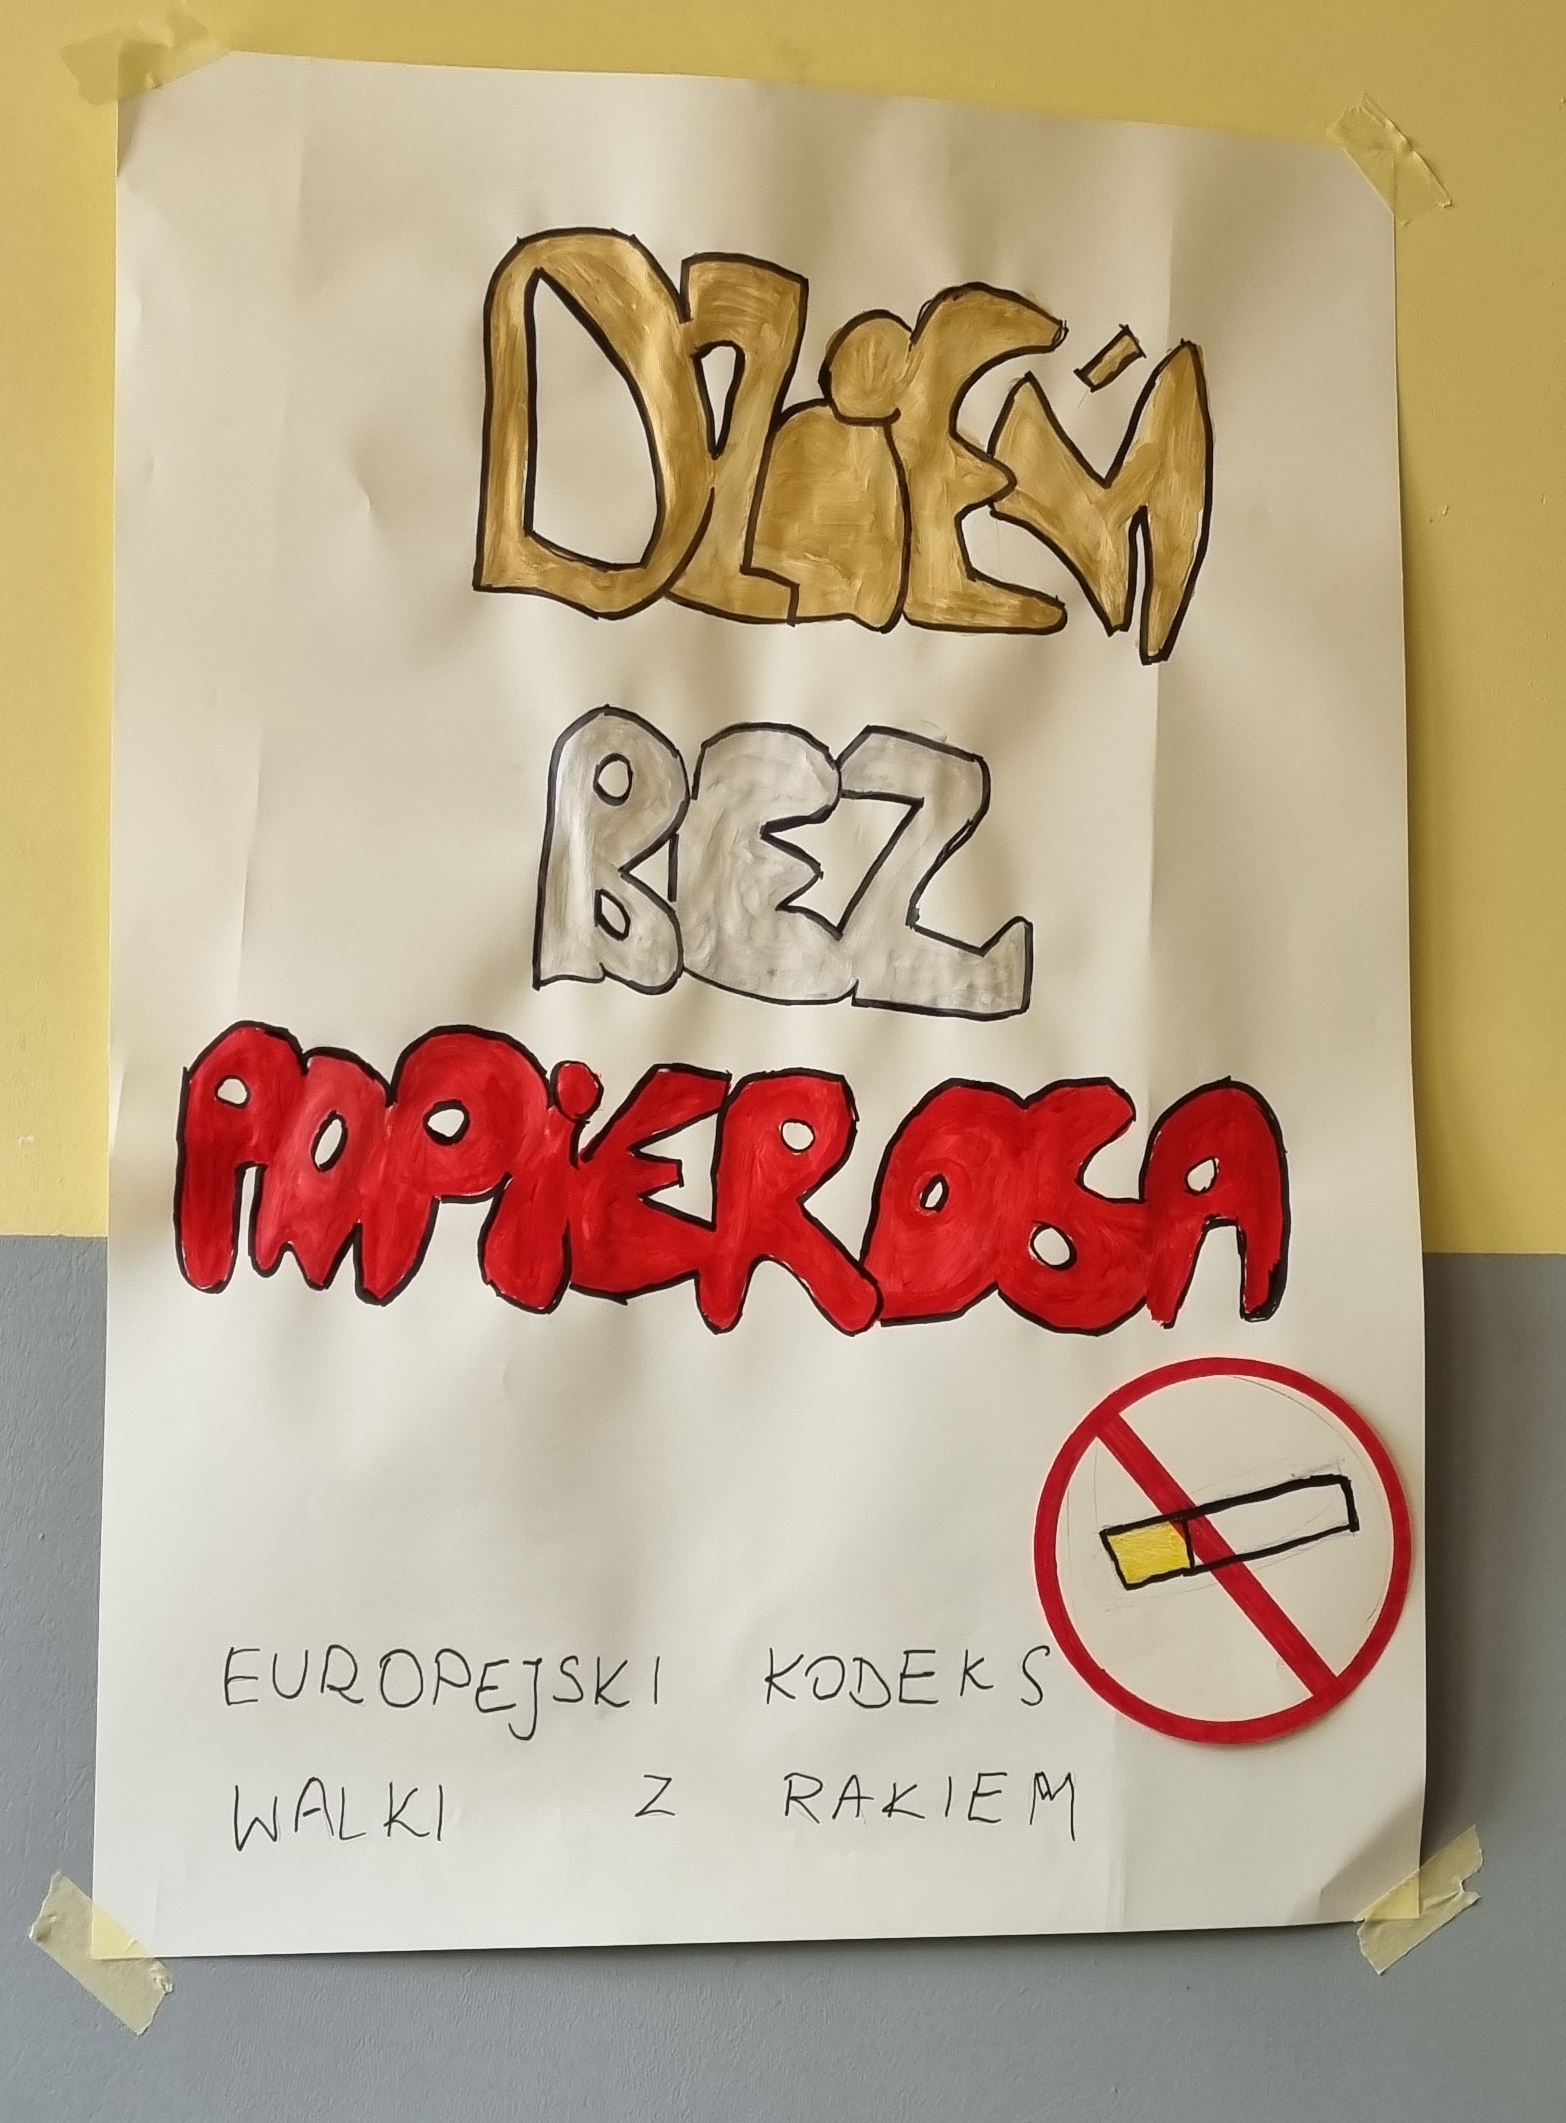 DZiEŃ
BEZ
PAPiEROSA
EUROPEJSKI KODEKS
WALKI Z RAKIEM